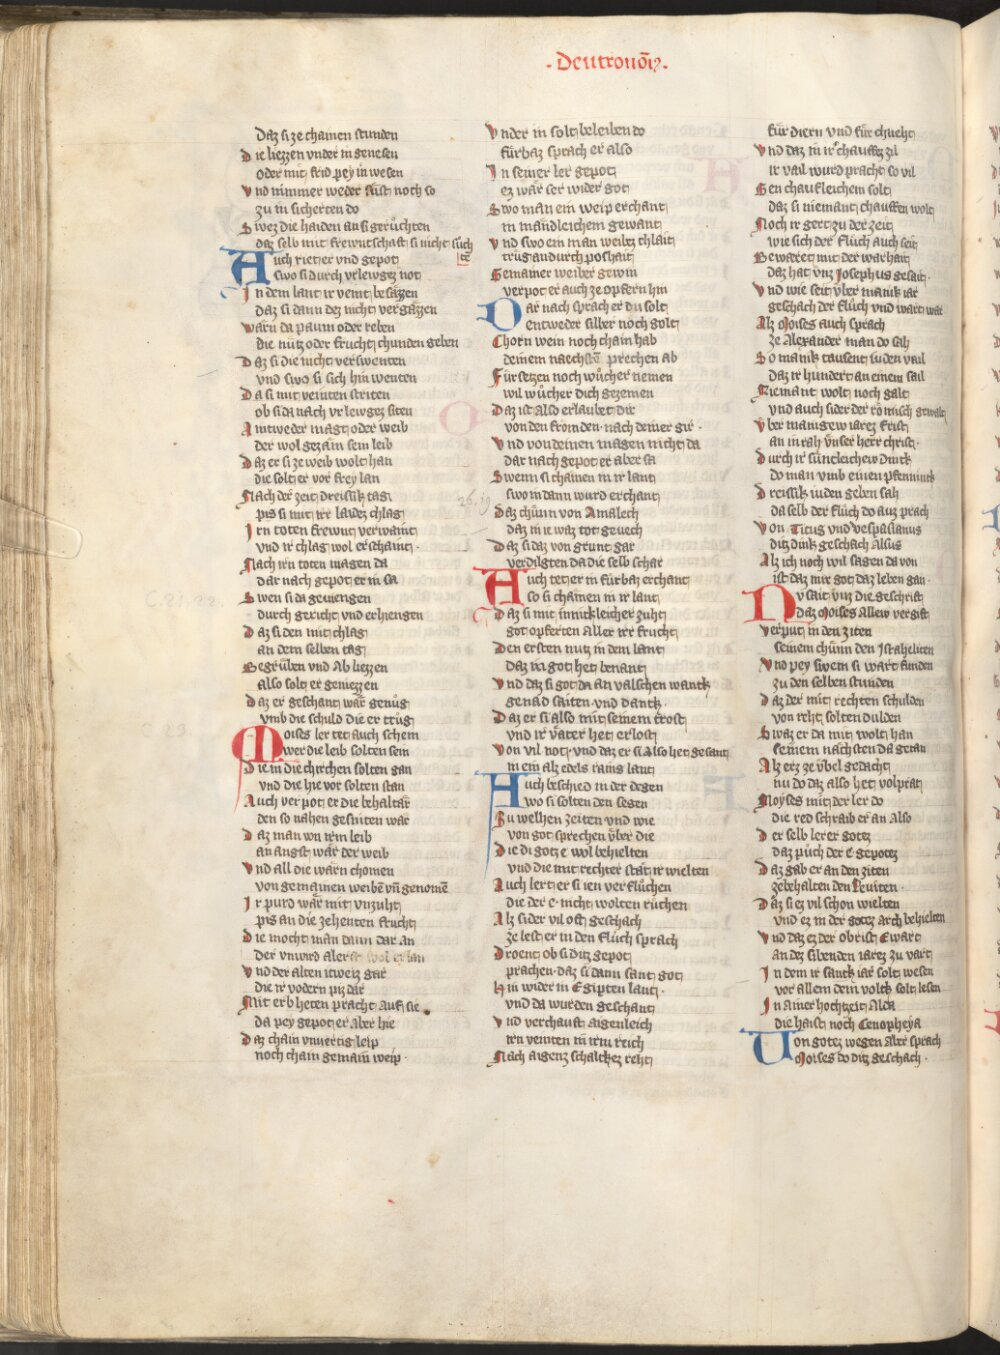 · Deutronōı9 ·
Daz si ze chainen stunden
Die liezzen vnder in genesen
oder mit frid pey in wesen
Vnd nimmer weder sust noch so
zu in sicherten do
Swez die haiden an si gerůchten
daz selb mit frewntschaft si nicht such
te
Auch riet er vnd gepot
swo si durch vrlewgez not
In dem lant ir veint besäzzen
daz si dann dez nicht vergäzzen
Warn da paum oder reben
die nutz oder frucht chunden geben
Daz si die nicht verswenten
vnd swo si sich hin wenten
Da si mit veinten striten
ob si da nach vrlewgez siten
Aintweder magt oder weib
der wol gezäm sein leib
Daz er si ze weib wolt han
die solt er vor frey lan
Nach der zeit dreissik tag
pis si mit irr laidez chlag
Irn toten frewnt verwaint
vnd ir chlag wol erschaint ·
Nach irn toten magen da
dar nach gepot er in sa
Swen si da geviengen
durch gericht vnd erhiengen
Daz si den mit chlag
an dem selben tag
Begrůben vnd Ab liezzen
Also solt er geniezzen
Daz er geschant wär genůg
vmb die schuld die er trůg
Moises ler tet auch schem
wer die leib solten sein
Die in die chirchen solten gan
vnd die hie vor solten stan
Auch ver pot er die behaltär
den so nahen gesniten wär
Daz man vnn irm leib
an angst wär der weib
Vnd all die warn chomen
von gemainen weibē vn̄ genomē
Ir purd wär mit vnzuht
pis an die zehenten frucht
Die mocht man dann dar an
der vnwird alerst wol erlan
Vnd der alten itweiz gar
die ir vodern piz dar
Mit erb heten pracht Auf sie
da pey gepot er Aber hie
Daz chain vnuertig leip
noch chain gemain weip ·
Vnder in solt beleiben do
fürbaz sprach er also
In seiner ler gepot
ez wär ser wider got
Swo man ein weip erchant
in mändleichem gewant
Vnd swo ein man weibez chlait
trüg an durch poshait
Gemainer weiber gewin
verpot er auch ze opfern hin
Dar nach sprach er du solt
entweder silber noch golt
Chorn wein noch chain hab
deinem naechstē prechen ab
Für setzen noch wůcher nemen
wil wůcher dich gezemen
Daz ist Also erlaubet dir
von den fromden nach deiner gir ·
Vnd von deinen magen nicht da
dar nach gepot er aber sa
Swenn si chainen in ir lant
swo in dann wurd erchant
Daz chünn von Amalech
daz in ie waz tot gevech
Daz si daz von grunt gar
verdilgten da die selb schar
Auch tet er in fürbaz erchant
so si chämen in ir lant
Daz si mit innickleicher zuht
got opferten Aller irr frucht
Den ersten nutz in dem lant
daz in got het benant
Vnd daz si got da an valschen wanck
genad saiten vnd danck ·
Daz er si also mit seinem trost
vnd ir väter het erlost
Von vil not vnd daz er si Also het gesant
in ein alz edels rains lant
Auch beschied in der degen
wo si solten den segen
Zu welhen zeiten vnd wie
von got sprechen über die
Die di gotz e wol behielten
vnd die mit rechter stät ir wielten
Auch lert er si ien ver flůchen
die der e nicht wolten růchen
Alz sider vil oft geschach
ze lest er in den flüch sprach
Droent ob si ditz gepot
prachen daz si dann sant got
Hin wider in Egipten lant ·
vnd da wurden geschant
Vnd verchauft aigenleich
irn veinten in irm reich
Nach aigenz schalchez reht
für diern vnd für chneht
Vnd daz in ir chauffez zil
ir vail wurd pracht so vil
Gen chaufleichem solt
daz si niemant chauffen wolt
Noch ir gert zu der zeit
wie sich der flüch auch seit
Bewäret mit der warhait
daz hat vnz Josephus gesait ·
Vnd wie seit vber manik iar
geschach der flüch vnd wart war
Alz Moises auch sprach
ze Alexander man do sah
So manik tausent iuden vail
daz ir hundert an einem sail
Niemant wolt noch galt
vnd auch sider der römisch gewalt
Vber manigew iarez frist
an in rah vnser herr christ ·
Durch ir sünteleichew dinck
do man vmb einen pfenninck
Dreissik iuden geben sah
da selb der flüch do auz prach
Von Titus vnd Vespasianus
ditz dink geschach alsus
Alz ich noch wil sagen da von
ist daz mir got daz leben gan ·
Nv sait vnz die geschrift
daz Moises Allew vergift
Verput in den ziten
seinem chünn den Israheliten
Vnd pey swem si wart funden
zu den selben stunden
Daz der mit rechten schulden
von reht solten dulden
Swaz er da mit wolt han
seinem nächsten da getan
Alz erz ze vbel gedacht
nu do daz also het volpraht
Moyses mit der ler do
die red schraib er an Also
Der selb lerer gotez
daz püch der E gepotez
Daz gab er an den ziten
zebehalten den Leuiten ·
Daz si ez vil schon wielten
vnd ez in der gotez arch behielten
Vnd daz ez der obrist Ewart
an dez sibenden iarez zu vart
In dem ir sanck iar solt wesen
vor allem dem volck solt lesen
In Ainer hochzeit Alda
die haist noch Cenopheya
Von gotez wegen Aber sprach
Moises do ditz geschach ·